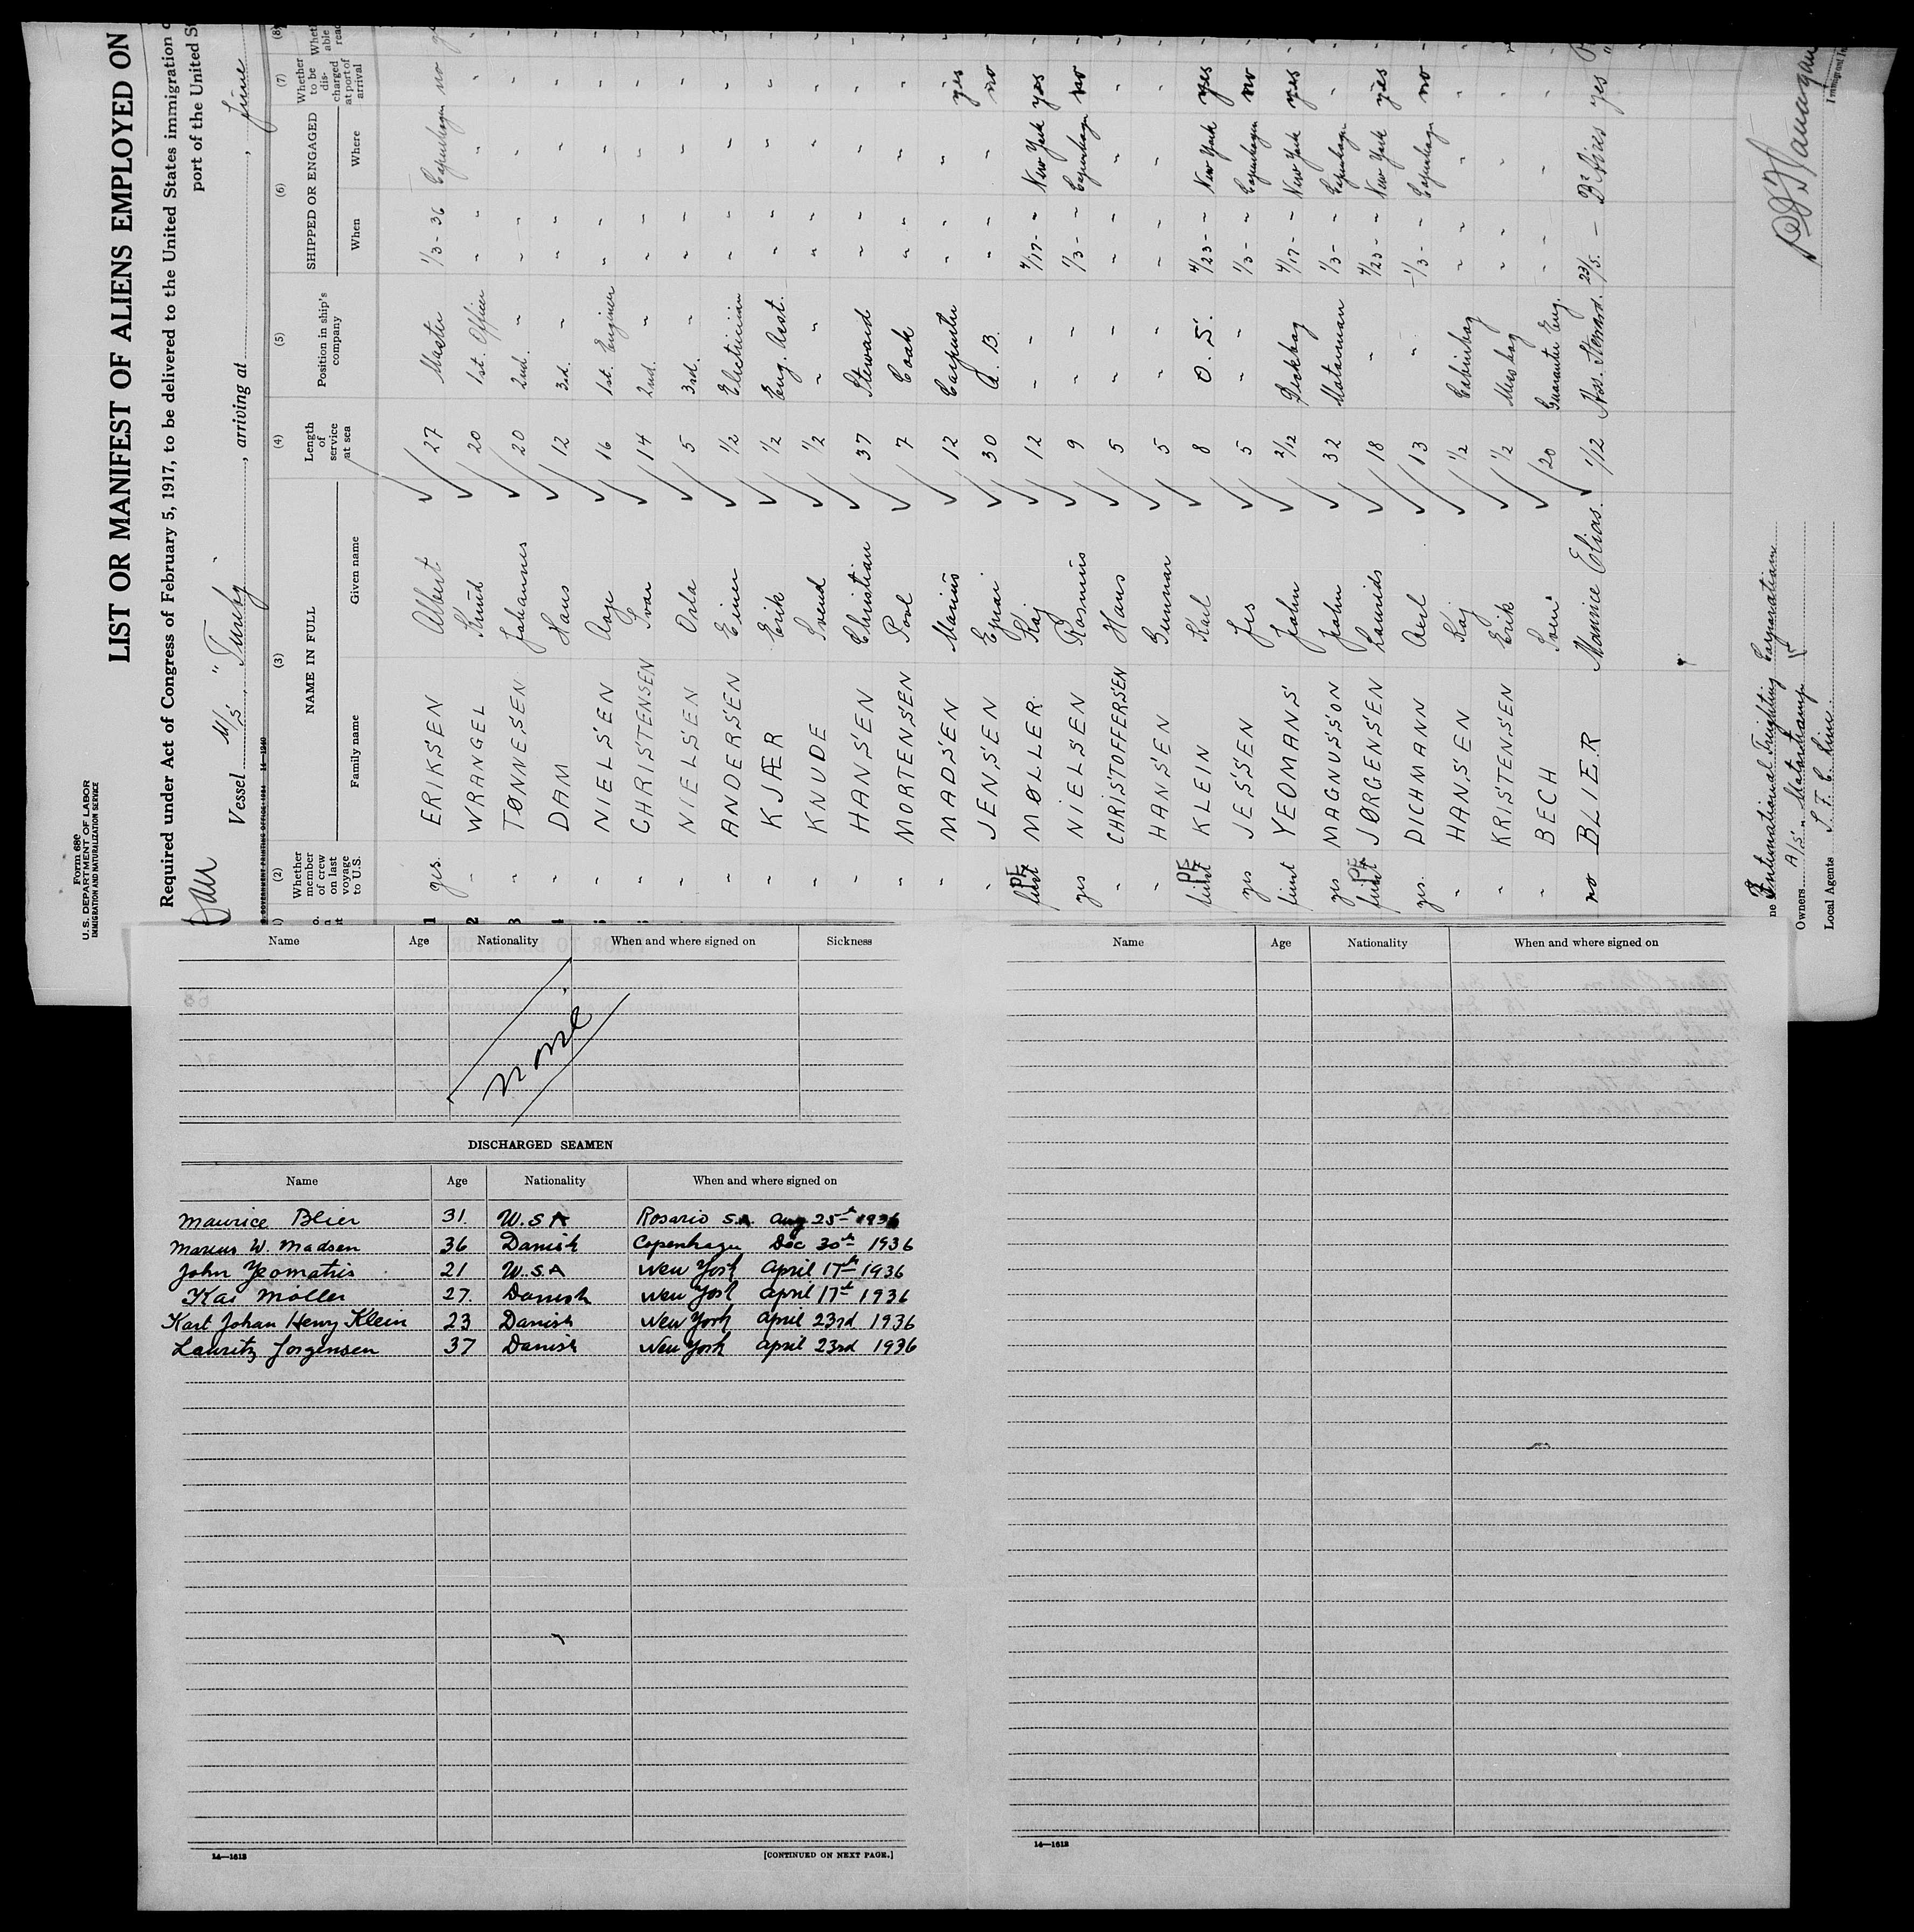 Form 680
U.S. DEPARTMENT OF LABOR
IMMIGRATION AND NATURALIZATION SERVICE
LIST OR MANIFEST OF ALIENS EMPLOYED ON
Required under Act of Congress of February 5, 1917, to be delivered to the United States immigration
port of the United
Vessel M/S "Tureby", arriving at , June
(2) (3) (4) (5) (6) (7) (8)
Whether member of crew on last voyage to U.S. NAME IN FULL Length of service at sea Position in ship's company SHIPPED OR ENGAGED Whether to be discharged at port of arrival
Family name Given name When Where
1 yes. ERIKSEN Albert 27 Master 1/3-36 Copenhagen no
2 " WRANGEL Knud 20 1st. Officer " " " "
3 " TØNNESEN Johannes 20 2nd. " " " " "
4 " DAM Hans 12 3rd. " " " " "
5 " NIELSEN Aage 16 1st. Engineer " " " "
" CHRISTENSEN Ivar 14 2nd. " " " " "
" NIELSEN Orla 5 3rd. " " " " "
" ANDERSEN Einer 1/2 Electrician " " " "
" KJÆR Erik 1/2 Eng. Asst. " " " "
" KNUDE Svend 1/2 " " " " "
" HANSEN Christian 37 Steward " " " "
" MORTENSEN Povl 7 Cook " " " "
" MADSEN Marius 12 Carpenter " " " yes
" JENSEN Ejnar 30 A.B. " " " no
first MØLLER Kaj 12 " 4/17- " New York yes
yes NIELSEN Rasmus 9 " 1/3- " Copenhagen no
" CHRISTOFFERSEN Hans 5 " " " " "
" HANSEN Gunnar 5 " " " " "
first KLEIN Karl 8 O.S. 4/23- " New York yes
yes JESSEN Jes 5 " 1/3- " Copenhagen no
first YEOMANS John 2/12 Deckboy 4/17- " New York yes
yes MAGNUSSON John 32 Motorman 1/3- " Copenhagen "
first JØRGENSEN Laurids 18 " 4/23- " New York yes
yes. DICHMANN Axel 13 " 1/3- " Copenhagen no
" HANSEN Kaj 1/2 Cabinboy " " " "
" KRISTENSEN Erik 1/2 Messboy " " " "
" BECH Svend 20 Guarantee Eng. " " " "
no BLIER Maurice Elias. 1/12 Ass. Steward. 23/5. - Bs Aires yes
International Freighting Corporation
Owners A/S Motortramp
Local Agents I. F. C. Line.
Name Age Nationality When and where signed on Sickness
none
DISCHARGED SEAMEN
Name Age Nationality When and where signed on
Maurice Blier 31. U.S.A Rosario S.A. Aug 25th 1936
Marius W. Madsen 36 Danish Copenhagen Dec 30th 1936
John Yeomans 21 U.S.A New York April 17th 1936
Kai Moller 27. Danish New York April 17th 1936
Karl Johan Henry Klein 23 Danish New York April 23rd 1936
Lauritz Jorgensen 37 Danish New York April 23rd 1936
14—1613 [CONTINUED ON NEXT PAGE.]
Name Age Nationality When and where signed on
14—1613